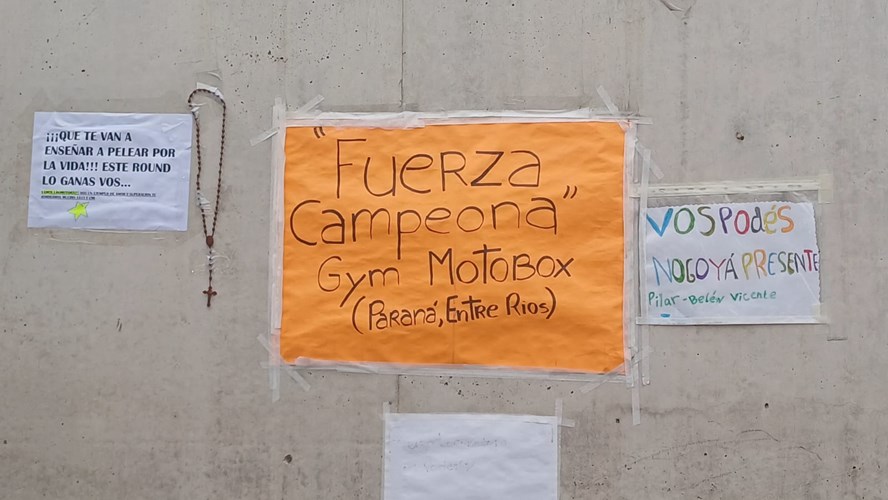 ¡¡¡QUE TE VAN A
ENSEÑAR A PELEAR POR
LA VIDA!!! ESTE ROUND
LO GANAS VOS...
"Fuerza
Campeona"
Gym MotoBox
(Paraná, Entre Rios)
VOS Podés
NOGOYÁ PRESENTE
Pilar-Belén Vicente